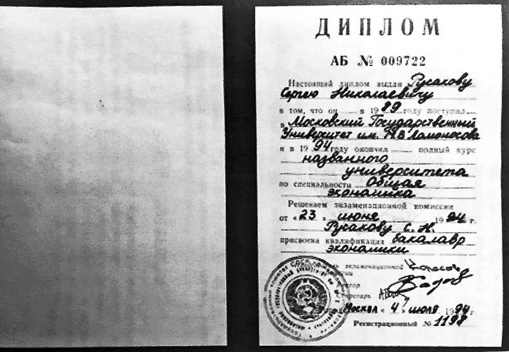 ДИПЛОМ
АБ № 009722
Настоящий диплом выдан Русакову
Сергею Николаевичу
в том, что он в 1989 году поступил
в Московский Государственный
Университет им. М.В. Ломоносова
и в 1994 году окончил полный курс
названного
университета
по специальности общая
экономика
Решением экзаменационной комиссии
от «23» июня 1994
Русакову С. Н.
присвоена квалификация бакалавр
экономики
экзаменационной
Москва «4» июля 1994
Регистрационный № 1198